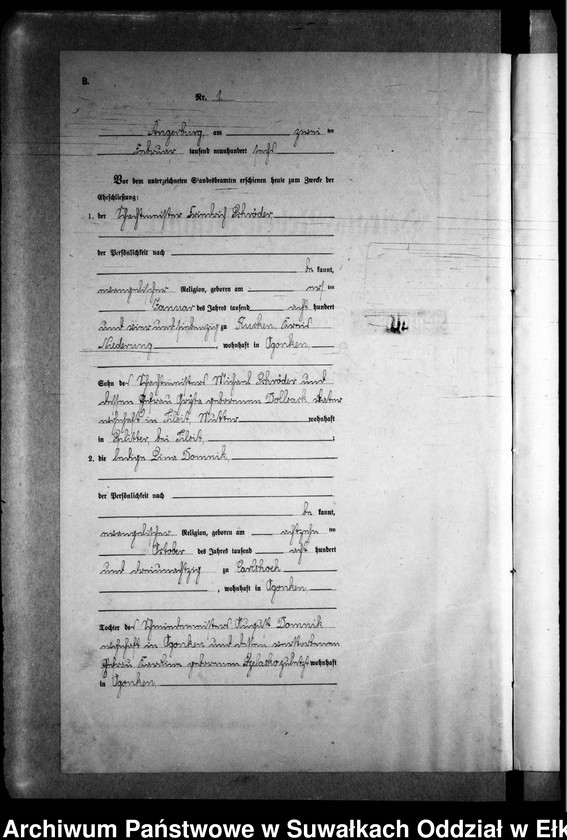 B.
Nr. 1
Angerburg, am zwei ten
Februar tausend neunhundert sechs
Vor dem unterzeichneten Standesbeamten erschienen heute zum Zwecke der
Eheschließung:
1. der Schachtmeister Friedrich Schröder
der Persönlichkeit nach
be kannt,
evangelischer Religion, geboren am ersten
Januar des Jahres tausend acht hundert
und vier und siebenzig zu Kreis
Niederung, wohnhaft in Ogonken,
Sohn des Schachtmeisters Michael Schröder und
dessen Ehefrau geborenen Vater
wohnhaft in Tilsit, Mutter wohnhaft
in Splitter, bei Tilsit ;
2. die ledige Lina Domnik,
der Persönlichkeit nach
be kannt,
evangelischer Religion, geboren am achtzehn ten
October des Jahres tausend acht hundert
und dreiundachtzig zu
, wohnhaft in Ogonken,
Tochter des Schmiedemeisters August Domnik
wohnhaft in Ogonken und dessen verstorbenen
Ehefrau geborenen wohnhaft
in Ogonken,
Archiwum Państwowe w Suwałkach Oddział w Ełk